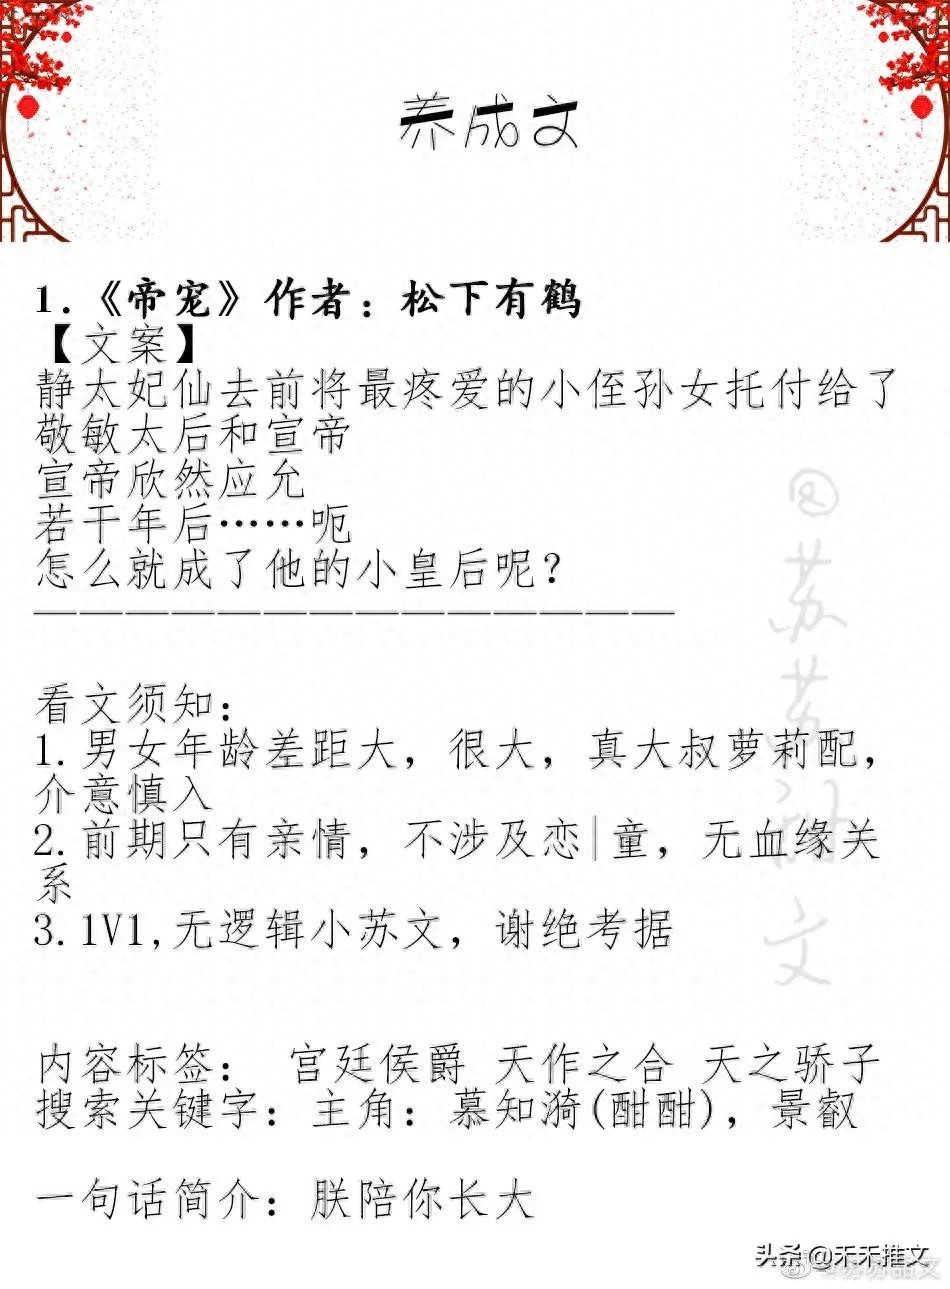 养成文
1.《帝宠》作者：松下有鹤
【文案】
静太妃仙去前将最疼爱的小侄孙女托付给了
敬敏太后和宣帝
宣帝欣然应允
若干年后……呃
怎么就成了他的小皇后呢？
——————————————
看文须知：
1.男女年龄差距大，很大，真大叔萝莉配，
介意慎入
2.前期只有亲情，不涉及恋|童，无血缘关
系
3.1V1,无逻辑小苏文，谢绝考据
内容标签： 宫廷侯爵 天作之合 天之骄子
搜索关键字：主角：慕知漪(酣酣)，景叡
一句话简介：朕陪你长大
头条 @禾禾推文